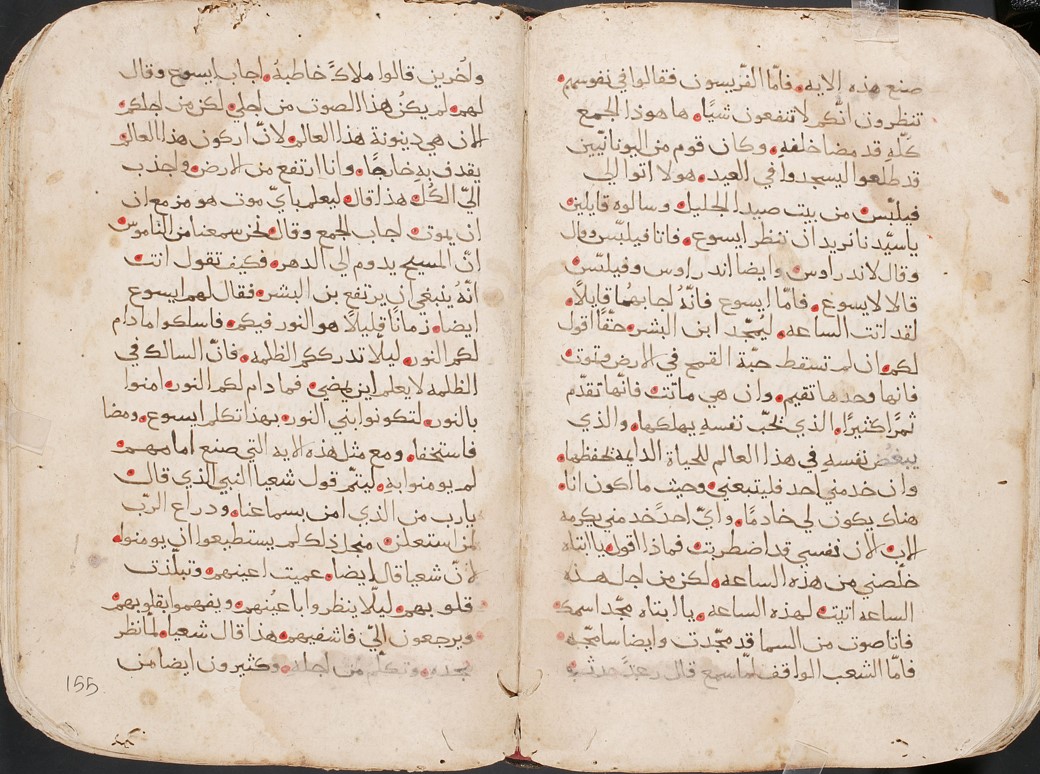 صنع هذه الايه. فامّا الفّريسون فقالوا في نفوسهم.
تنظرون انّكم لا تنفعون شيًا. ها هوذا الجمع
كلّه قد مضا خلفه. وكان قوم من اليونانيّين
قد طلعوا ليسجدوا في العيد. هولا اتوا الى
فيلبّس من بيت صيدا الجليل. وسالوه قايلين
ياسيّدنا نريد ان ننظر ايسوع. فاتا فيلبّس وقال
وقال لاندراوس. وايضا اندراوس وفيلبّس
قالا لايسوع. فامّا ايسوع فانّه اجابهُما قايلًا.
لقد اتت الساعه. ليُمجّد ابن البشر. حقًا اقول
لكم. ان لم تسقط حبّة القمح في الارض وتموت
فانها وحدها تقيم. وان هي ماتت فانّها تقدّم
ثمرًا كثيرًا. الذي يُحبّ نفسهِ يهلكها. والذي
يبغُض نفسهِ في هذا العالم للحياة الدايمه يحفظها.
وان خدمني احد فليتبعني. وحيث ما اكون انا.
هناك يكون لي خادمًا. وايّ احدً خدمني يكرمه
الاب. الان نفسي قد اضطربت. فماذا اقول يا ابتاه
خلّصني من هذه الساعه. لكن من اجل هذه
الساعه اتيت لهذه الساعه. يا ابتاه مجّد اسمك
فاتا صوت من السما قد مجّدت وايضا سامجّد.
فامّا الشعب الواقف لمّا سمع قال رعدً حدث.
واخرين قالوا ملاكً خاطبهُ. اجاب ايسوع وقال
لهم. لم يكنُ هذا الصوت من اجلي. لكن من اجلكم
الان هي دينونة هذا العالم. لانّ اركون هذا العالم.
يقدف بهِ خارجًا. وانا ارتفع من الارض. واجذب
اليّ الكُل. هذا قال. ليعلم بايّ موت هو مزمع ان
ان يموت. اجاب الجمع وقال. نحن سمعنا من الناموس
انّ المسيح يدوم الى الدهر. فكيف تقول انت
انّهُ ينبغي ان يرتفع بن البشر. فقال لهم ايسوع
ايضا. زمانًا قليلًا هو النور فيكم. فاسلكوا ما دام
لكم النور. ليلّا تدرككم الظلمه. فانّ السالك في
الظلمه لا يعلم اين يمضي. فما دام لكم النور. امنوا
بالنور. لتكونوا بني النور. بهذا تكلم ايسوع. ومضا
فاستخفا. ومع مثل هذه الايه التي صنع امامهم.
لم يومنوا به. ليتمّ قول شعيا النبي الذي قال.
يارب من الذي امن بسماعنا. ودراع الربّ
لمن استعلن. من اجل ذلك لم يستطيعوا ان يومنوا.
لانّ شعيا قال ايضا. عميت اعينهم. وتبلّدت
قلوبهم. ليلّا ينظروا باعيُنهم. ويفهموا بقلوبهم.
ويرجعون اليّ. فاشفيهم. هذا قال شعيا. لمّا نظر
مجده. وتكلّم من اجله. وكثيرون ايضا من
155